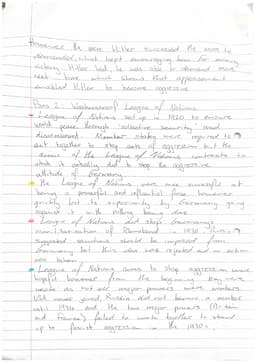 However the more Hitler succeeded the more he
demanded, which kept encouraging him. For every
victory Hitler had, he was able to demand more
next time which shows that appeasement
enabled Hitler to become aggressive.
Para 2: Weaknesses of League of Nations
League of Nations set up in 1920 to ensure
world peace through 'collective security' and
disarmament. Member states were required to
act together to stop acts of aggression but the
of the League of Nations
it failing to stop the aggressive
attitude of Germany.
The League of Nations were more successful at
being a peaceful and influential force, however
quickly lost its superiority by Germany going
against it with nothing being done.
League of Nations did stop Germany's
remilitarisation of Rhineland in 1936.
suggested sanctions should be imposed from
Germany but this idea was rejected and no action
was taken.
League of Nations aims to stop aggression were
hopeful however from the beginning they were
weak as not all major powers were members.
USA never joined, Russia did not become a member
until 1934 and the two major powers (Britain
and France) failed to work together to stand
up to fascist aggression in the 1930s.